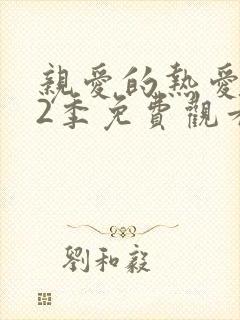 親愛的熱愛
2季免費觀看
劉和毅